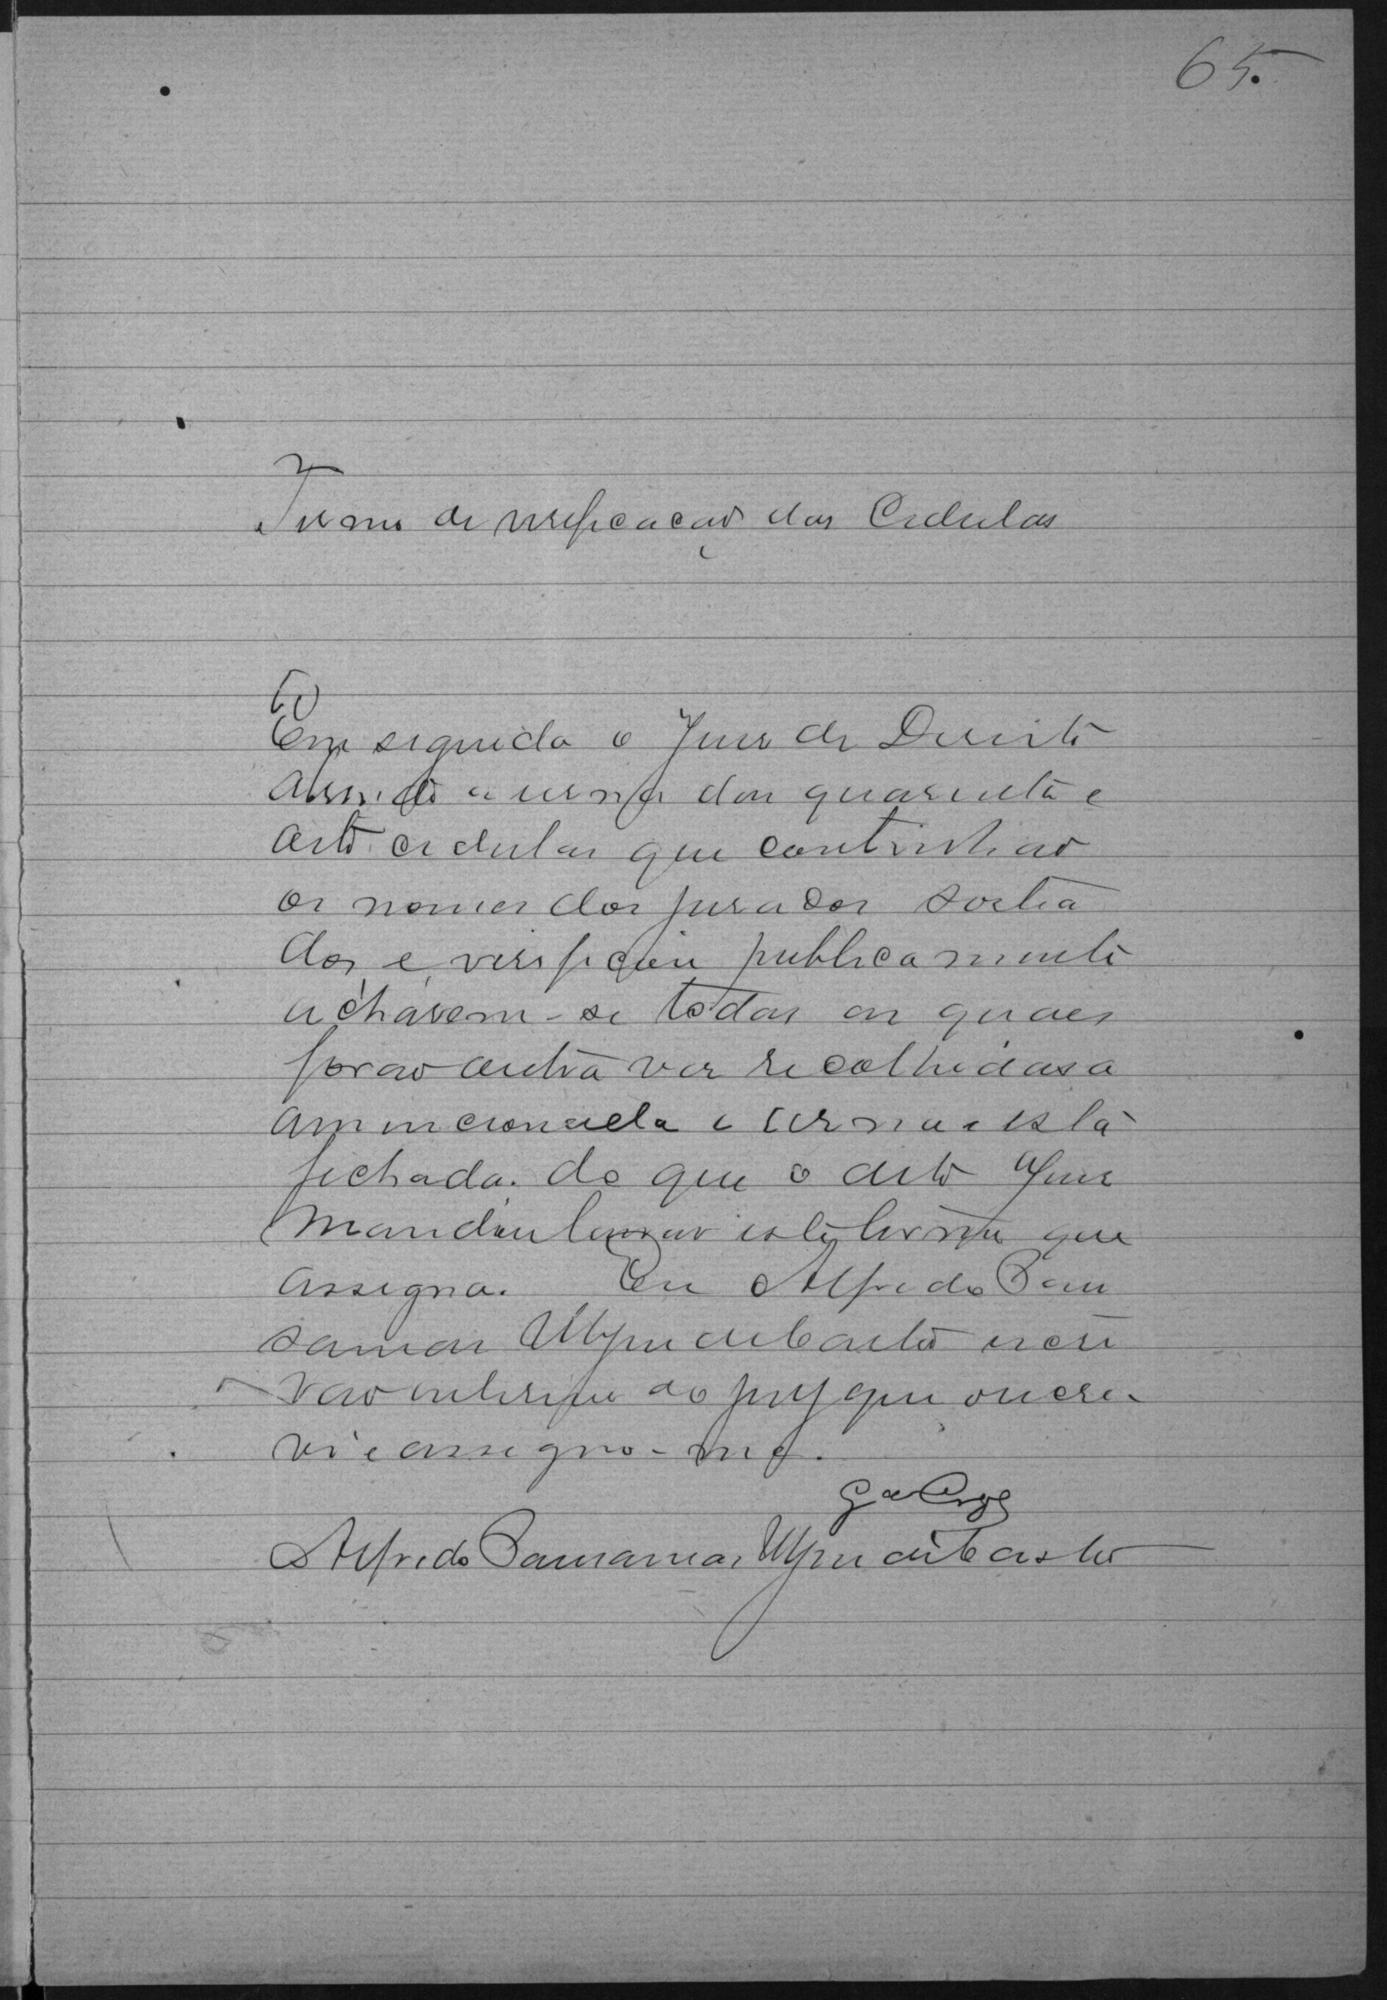 65.
Termo de verificação das Cedulas
Em seguida o Juiz de Direito
abrindo a urna das quarenta e
oito cedulas que continhão
os nomes dos jurados sortia
dos, e verificou publicamente
acharem-se todas as quaes
forão outra vez recolhidas a
mencionada urna e esta
fechada. do que o dito Juiz
Mandou lavrar este termo que
assigna. Eu Alfredo
escri
vão interino do jury que escre-
vi e assigno-me.
Alfredo